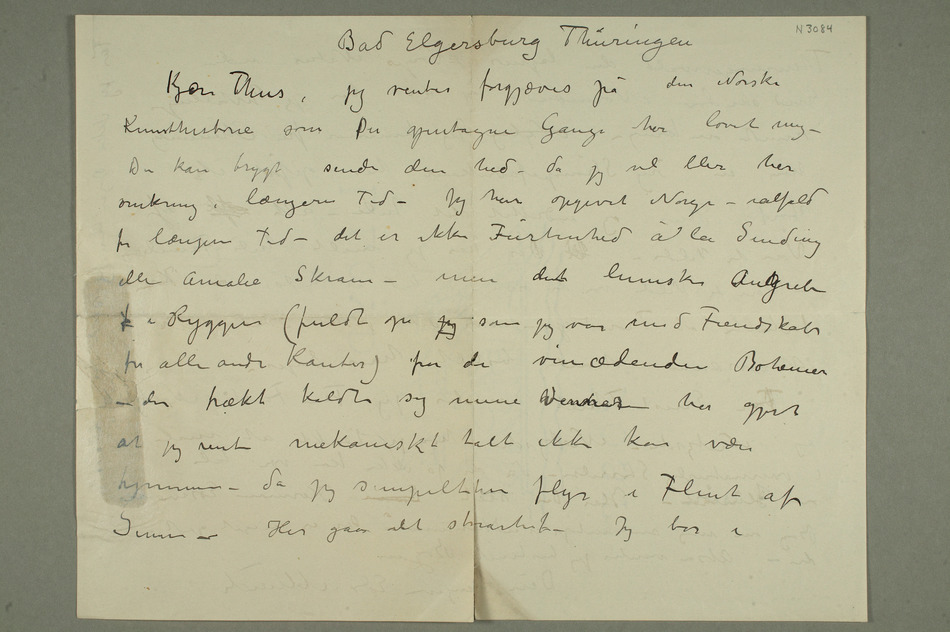 N 3084
Bad Elgersburg Thüringen
Kjære Thiis, jeg venter forgjæves på den Norske
Kunsthistorie som Du gjentagne Gange har lovet mig –
Du kan trygt sende den hid – da jeg vil blive her
omkring i længere Tid – Jeg har opgivet Norge – ialfald
for længere Tid – det er ikke Fürtenhed a' la Sinding
eller Amalie Skram – men det lumske Angreb
i Ryggen (fuldt op jeg som jeg var med Fiendskab
fra alle andre Kanter) fra de vinædenden Bohemer
– der frækt kaldte sig mine Venner har gjort
at jeg rent mekaniskt talt ikke kan være
hjemme – da jeg simpelthen flyr i Flint af
Sinne – Her gaar det storartet – Jeg bor i